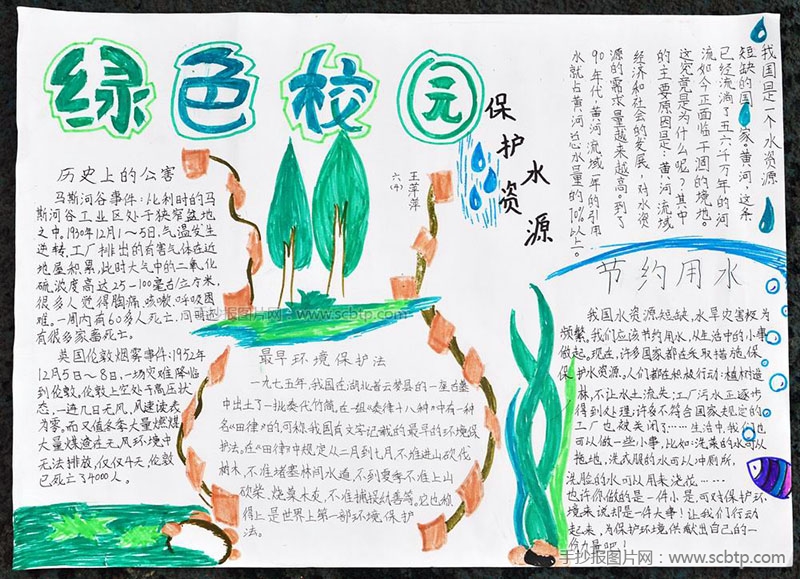 绿色校园
保护水资源
六(4)
王萍萍
历史上的公害
马斯河谷事件:比利时的马
斯河谷工业区处于狭窄盆地
之中,1930年12月1~5日,气温发生
逆转,工厂排出的有害气体在近
地层积累,此时大气中的二氧化
硫浓度高达25-100毫克/立方米,
很多人觉得胸痛、咳嗽、呼吸困
难。一周内有60多人死亡,同时还
有很多家畜死亡。
英国伦敦烟雾事件:1952年
12月5日~8日,一场灾难降临
到伦敦。伦敦上空处于高压状
态,一连几日无风,风速读表
为零。而又值冬季大量燃煤
大量煤渣在无风环境中
无法排放,仅仅4天,伦敦
已死亡了4000人。
最早环境保护法
一九七五年,我国在湖北省云梦县的一座古墓
中出土了一批秦代竹简,在一组《秦律十八种》中有一种
名《田律》的,可称我国有文字记载的最早的环境保
护法。在《田律》中规定从二月到七月,不准进山砍伐
树木,不准堵塞林间水道,不到夏季不准上山
砍柴、烧草木灰,不准捕捉幼兽等。它也称
得上是世界上第一部环境保护
法。
我国是一个水资源
短缺的国家。黄河,这条
已经流淌了五六千万年的河
流如今正面临干涸的境地。
这究竟是为什么呢?其中
的主要原因是:黄河流域
经济和社会的发展,对水资
源的需求量越来越高。到了
90年代,黄河流域一年的引用
水就占黄河总水量的70%以上。
节约用水
我国水资源短缺,水旱灾害极为
频繁,我们应该节约用水,从生活中的小事
做起。现在,许多国家都在采取措施,保
护水资源。人们都在积极行动:植树造
林,不让水土流失;工厂污水正逐步
得到处理;许多不符合国家规定的
工厂也被关闭了……生活中,我们也
可以做一些小事,比如:洗菜的水可以
拖地,洗衣服的水可以冲厕所,
洗脸的水可以用来浇花……
也许你做的是一件小事,可对保护环
境来说却是一件大事!让我们行动
起来,为保护环境,供献出自己的一
份力量吧!
手抄报图片网:www.scbtp.com
手抄报图片网:www.scbtp.com